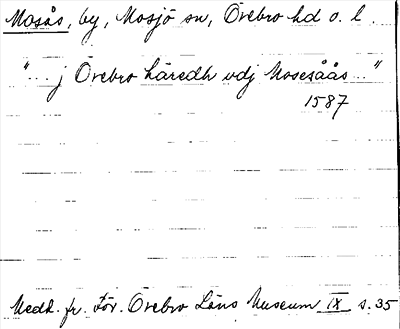 Mosås, by, Mosjö sn, Örebro hd o. l.
"... j Örebro häredh vdj Mosesåås..."
1587
Medd. fr. För. Örebro Läns Museum IX s. 35